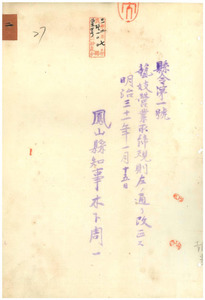 縣令第一號
藝妓營業取締規則左ノ通リ改正ス
明治三十一年一月十五日
鳳山縣知事木下周一